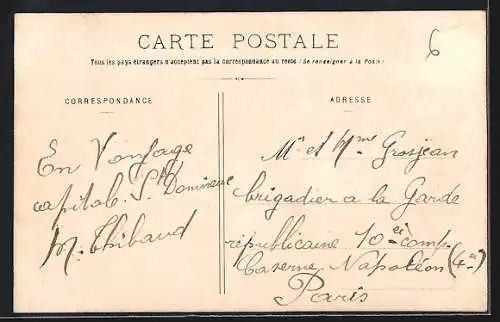 CARTE POSTALE
6
Tous les pays étrangers n'acceptent pas la correspondance au verso (Se renseigner à la Poste)
CORRESPONDANCE
En Voyage
capitale St Domineuc
M. Thibaud
ADRESSE
Mr et Mme Grosjean
brigadier a la Garde
républicaine 10-eie comp
Caserne Napoléon (4-e)
Paris